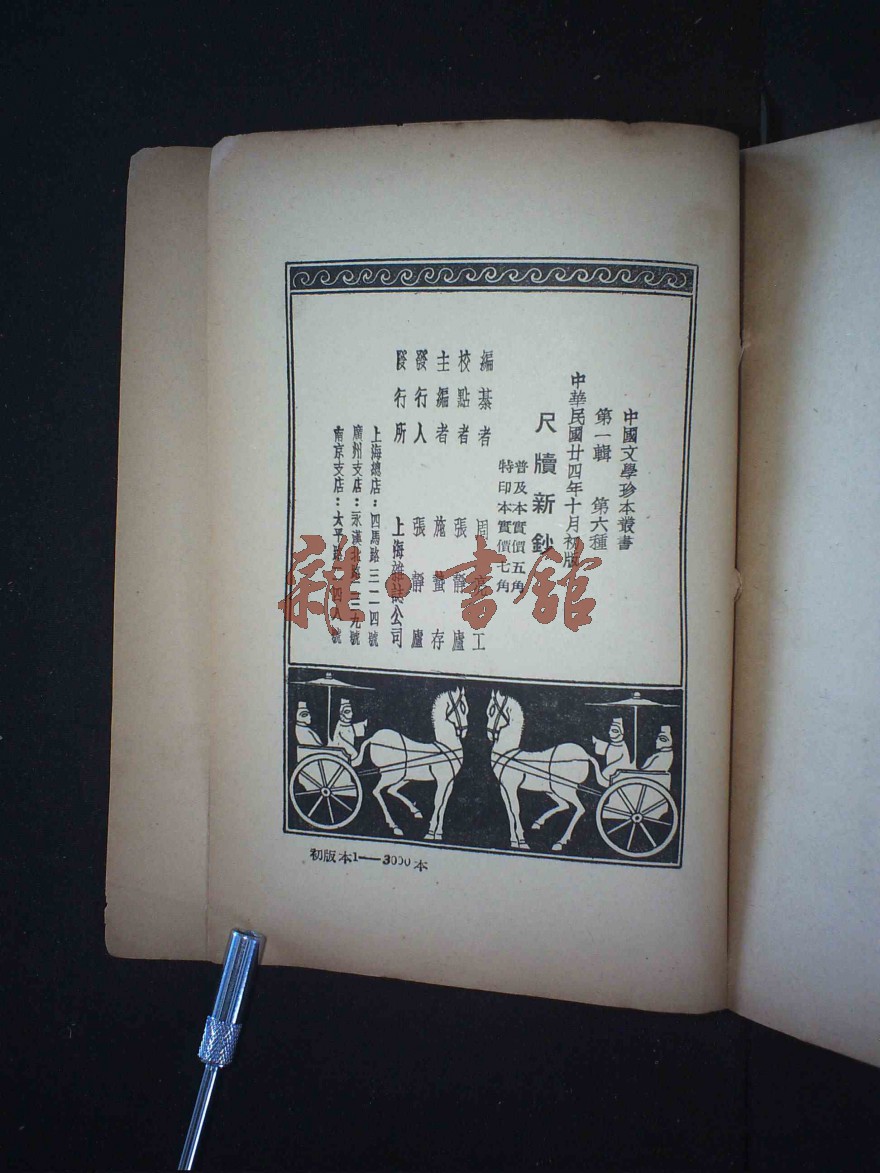 中國文學珍本叢書
第一輯 第六種
中華民國廿四年十月初版
尺牘新鈔
普及本實價五角
特印本實價七角
編纂者 周亮工
校點者 張靜廬
主編者 施蟄存
發行人 張靜廬
發行所 上海雜誌公司
上海總店：四馬路三二四號
廣州支店：永漢北路二三九號
南京支店：太平路二四八號
初版本1—3000本
雜·書館